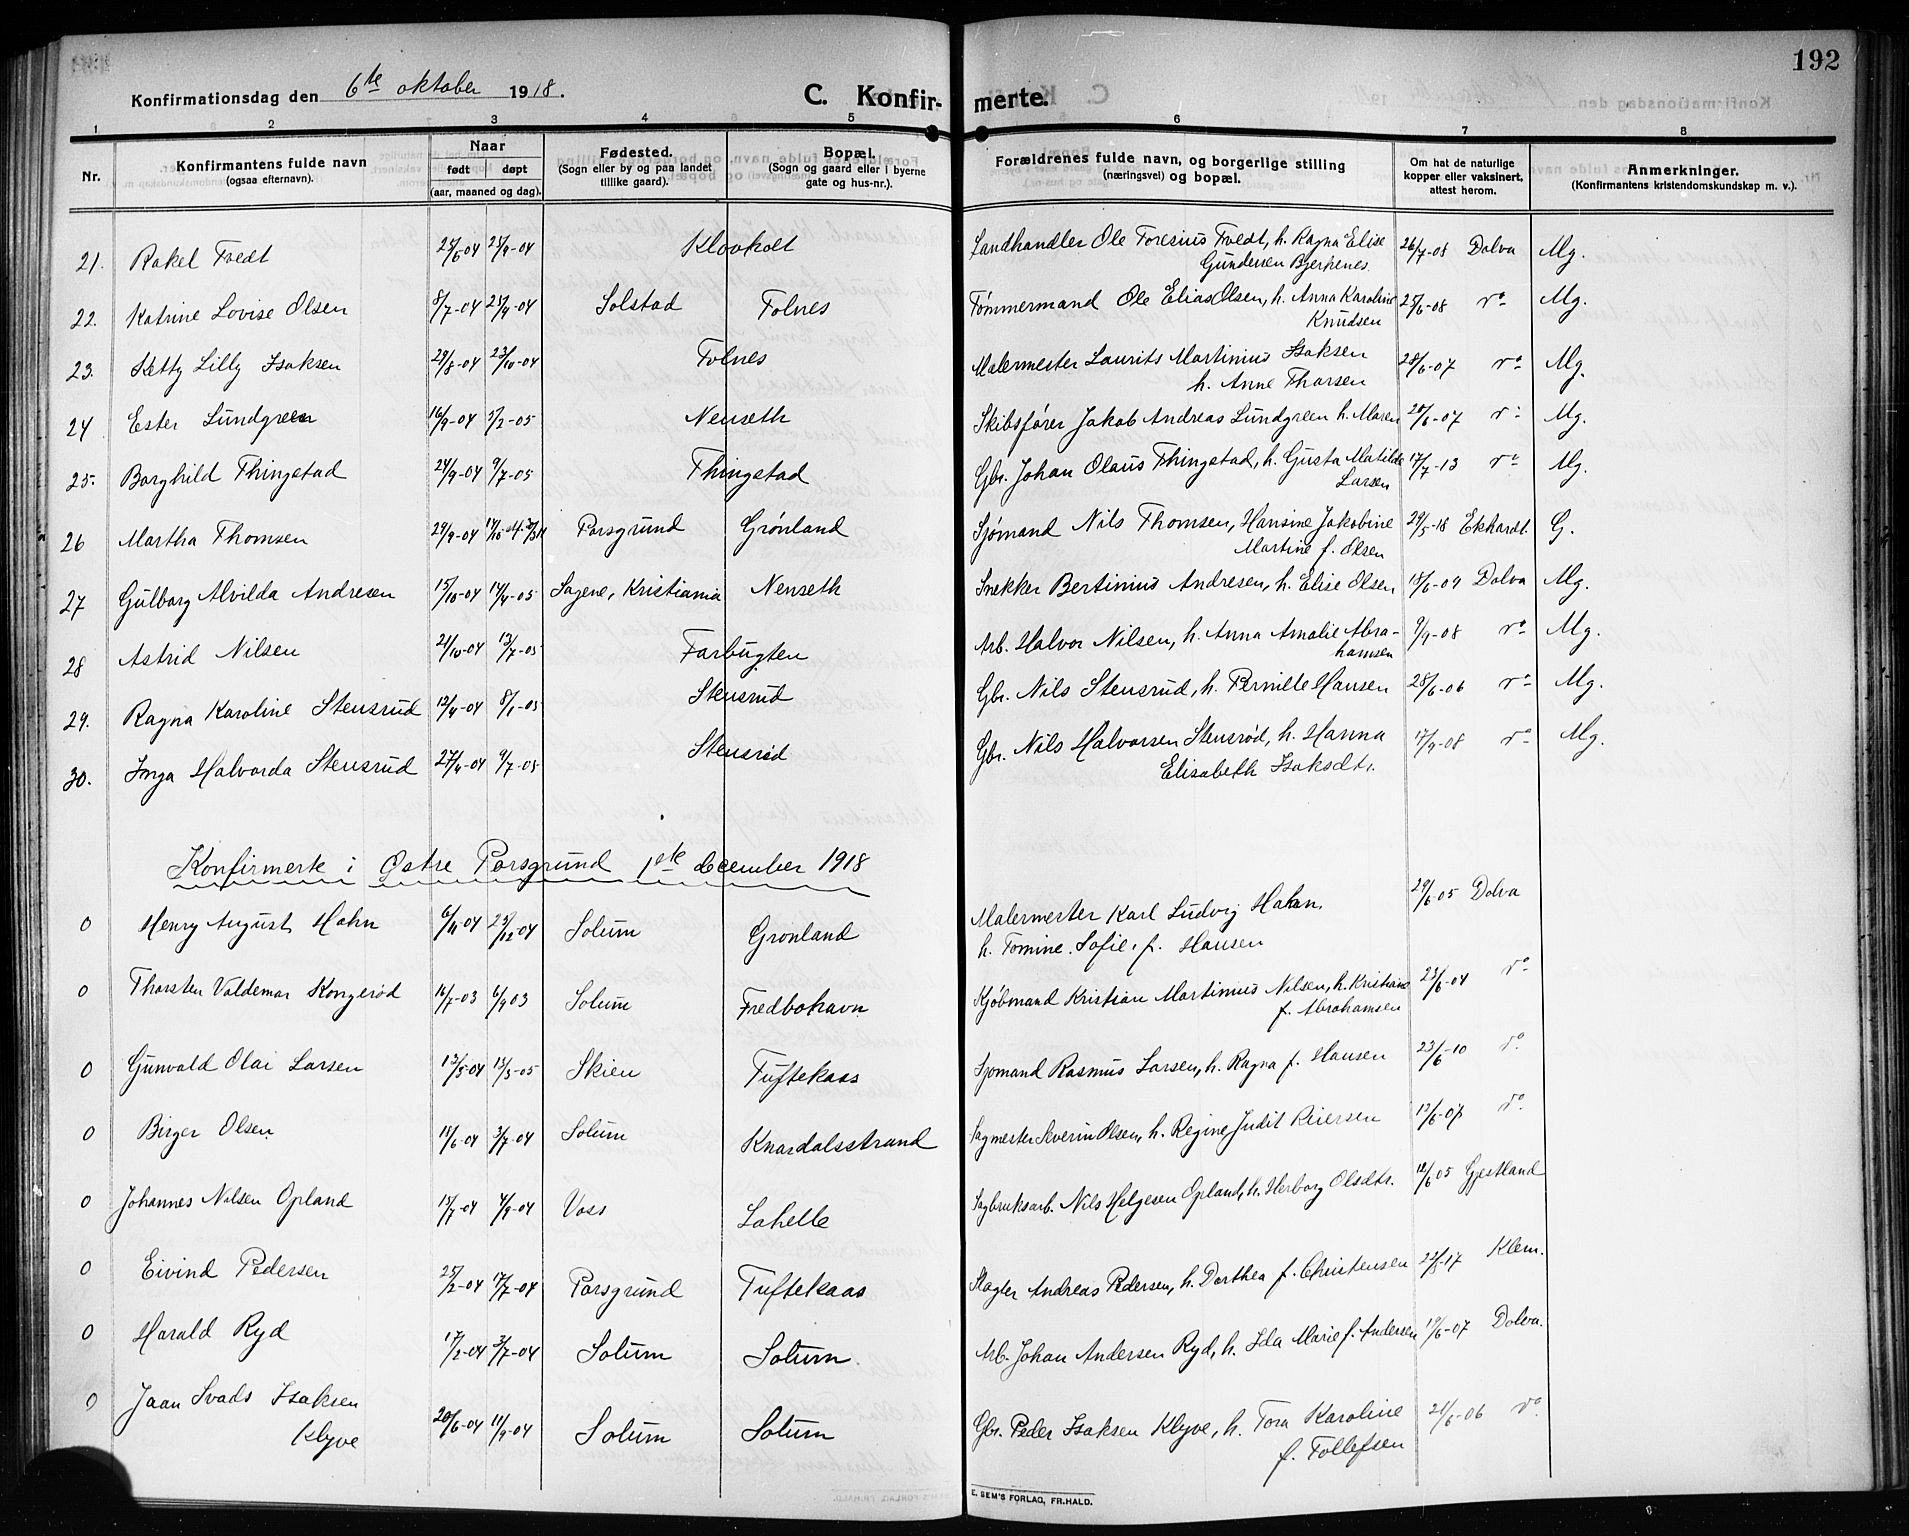 192
Konfirmationsdag den 6te oktober 1918.
C. Konfirmerte.
1 2 3 4 5 6 7 8
Nr.
Konfirmantens fulde navn (ogsaa efternavn).
Naar født døpt (aar, maaned og dag).
Fødested. (Sogn eller by og paa landet tillike gaard).
Bopæl. (Sogn og gaard eller i byerne gate og hus-nr.).
Forældrenes fulde navn, og borgerlige stilling (næringsvei) og bopæl.
Om hat de naturlige kopper eller vaksinert, attest herom.
Anmerkninger. (Konfirmantens kristendomskundskap m. v.).
21. Rakel Tvedt 25/6-04 25/9-04 Klovholt Landhandler Ole Toresius Tvedt, h. Ragna Elise Gundersen Bjerkenes. 26/7-08 Dolva Mg.
22. Katrine Lovise Olsen 8/7-04 25/9-04 Solstad Tolnes Tømmermand Ole Elias Olsen, h. Anna Karoline Knudsen 25/6-08 do Mg.
23. Ketty Lilly Isaksen 29/8-04 23/10-04 Tolnes Malermester Laurits Martinius Isaksen h. Anne Thorsen 28/6-07 do Mg.
24 Ester Lundgreen 16/9-04 5/2-05 Nenseth Skibsfører Jakob Andreas Lundgreen h. Maren 28/6-07 do Mg.
25. Borghild Thingstad 24/9-04 9/7-05 Thingstad Gbr. Johan Olaus Thingstad, h. Gusta Matilde Larsen 17/7-13 do Mg.
26 Martha Thomsen 29/9-04 Porsgrund Grønland Sjømand Nils Thomsen, Hansine Jakobine Martine f. Olsen 29/5-18 Ekhardt. G.
27 Gulborg Alvilda Andresen 15/10-04 14/4-05 Sagene, Kristiania Nenseth Snekker Bertinius Andresen, h. Elise Olsen 18/6-09 Dolva Mg.
28 Astrid Nilsen 21/10-04 13/7-05 Farbugten Arb. Halvor Nilsen, h. Anna Amalie Abrahamsen 9/9-08 do Mg.
29. Ragna Karoline Stensrud 12/4-04 8/1-05 Stensrud Gbr. Nils Stensrud, h. Pernille Hansen 28/6-06 do Mg.
30. Inga Halvorda Stensrud 27/4-04 9/7-05 Stensrød Gbr. Nils Halvorsen Stensrød, h. Hanna Elisabeth Isaksdtr. 17/9-08 do Mg.
Konfirmerte i Østre Porsgrund 1ste december 1918
0 Henry August Hahn 6/11-04 23/12-04 Solum Grønland Malermester Karl Ludvig Hahn, h. Tomine Sofie, f. Hansen 29/6-05 Dolva
0 Thorsten Valdemar Kongerød 16/7-03 6/9 03 Solum Fredbohavn Kjøbmand Kristian Martinius Nilsen, h. Kristiane f. Abrahamsen 23/6-04 do
0 Gunvald Olai Larsen 13/5-04 13/3-05 Skien Tuftekaas Sjømand Rasmus Larsen, h. Ragna f. Hansen 23/6-10 do.
0 Birger Olsen 14/6-04 3/7-04 Solum Knardalsstrand Sagmester Severin Olsen, h. Regine Judit Reiersen 12/6-07 do.
0 Johannes Nilsen Opland 14/7-04 4/9-04 Voss Lahelle Sagbruksarb. Nils Helgesen Opland, h. Herborg Olsdtr. 12/6 05 Gjestland
0 Eivind Pedersen 25/2-04 17/7-04 Porsgrund Tuftekaas Slagter Andreas Pedersen, h. Dorthea f. Christensen 22/5-17 Klem.
0 Harald Ryd 17/2-04 3/7-04 Solum Solum Arb. Johan Andersen Ryd, h. Ida Marie f. Andersen 19/6-07 Dolva.
0 Jaan Svads Isaksen Klyve 20/6-04 11/9-04 Solum Solum Gbr. Peder Isaksen Klyve, h. Tora Karoline f. Tollefsen 21/6-06 do
E. SEM'S FORLAG, FR.HALD.